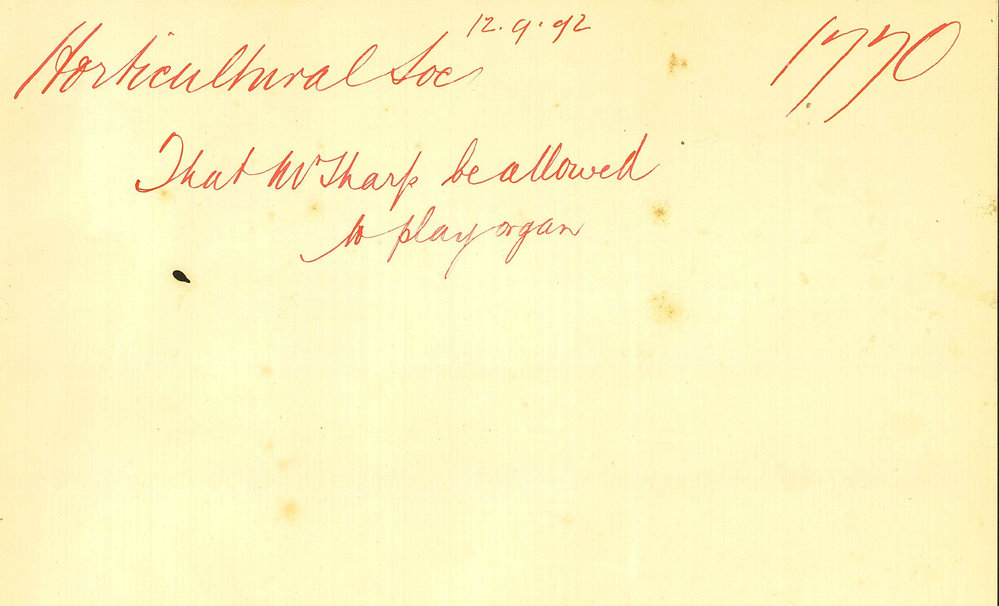 12.9.92
Horticultural Soc 1770
That Mr Sharp be allowed
to play organ